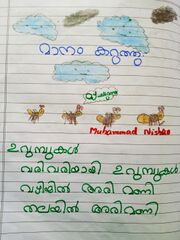 മാനം കറുത്തു
Muhammad Nishan
ഉറുമ്പുകൾ
വരിവരിയായി ഉറുമ്പുകൾ
വഴിയിൽ അരി മണി
തലയിൽ അരിമണി